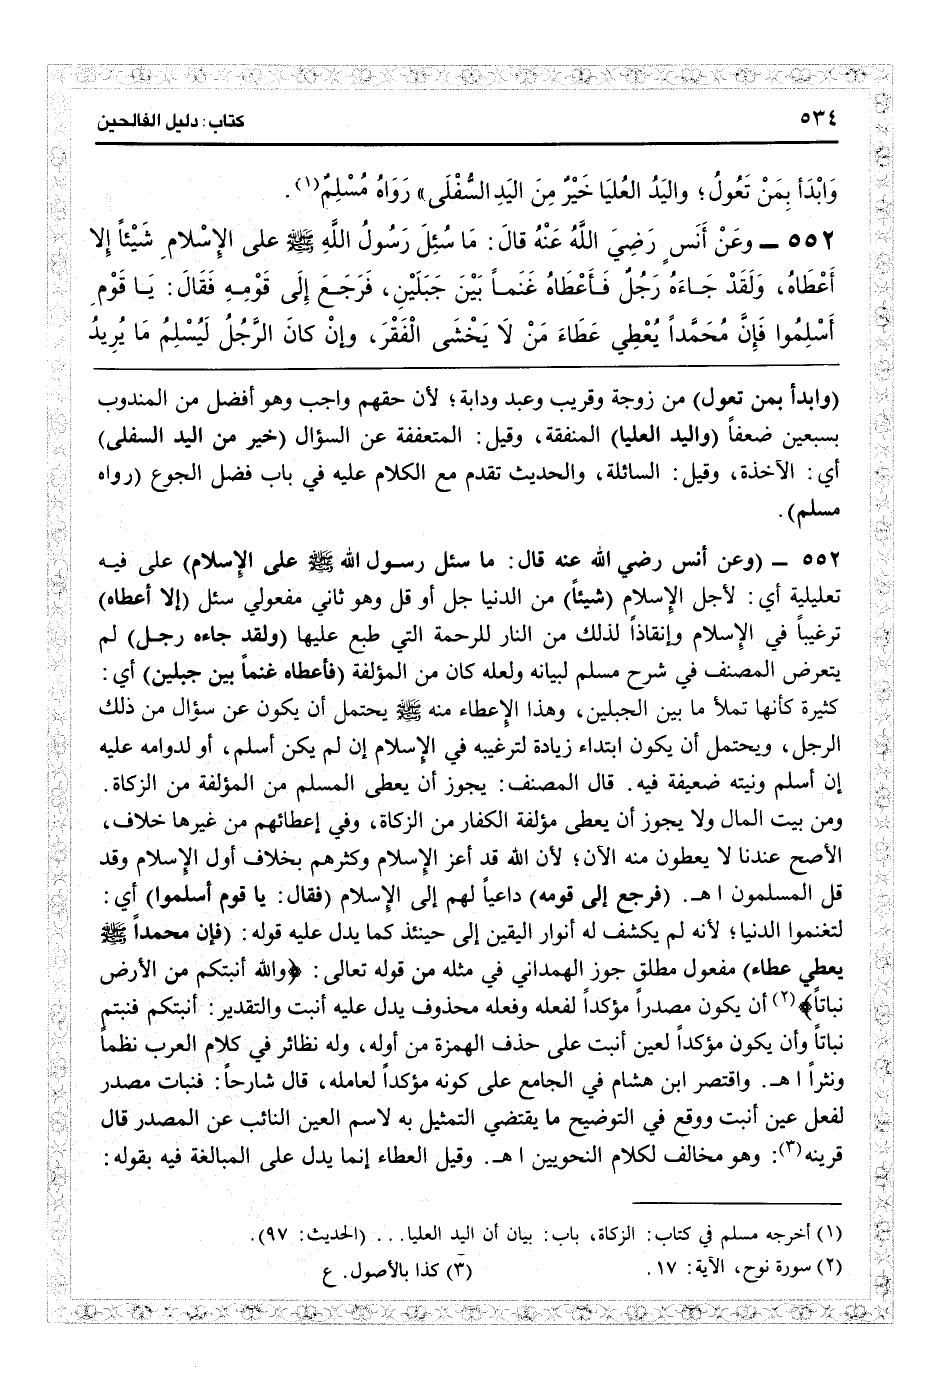 ٥٣٤ كتاب: دليل الفالحين
وَابْدَأ بِمَنْ تَعُولُ؛ واليَدُ العُليَا خَيْرٌ مِنَ اليَدِ السُّفْلَى» رَوَاهُ مُسْلِمٌ(١).
٥٥٢ ــ وعَنْ أَنَسٍ رَضِيَ اللَّهُ عَنْهُ قالَ: مَا سُئِلَ رَسُولُ اللَّهِ ﷺ على الإِسْلامِ شَيْئاً إلا
أَعْطَاهُ، وَلَقَدْ جَاءَهُ رَجُلٌ فَأَعْطَاهُ غَنَماً بَيْنَ جَبَلَيْنِ، فَرَجَعَ إِلَى قَوْمِهِ فَقَالَ: يَا قَوْمِ
أَسْلِمُوا فَإِنَّ مُحَمَّداً يُعْطِي عَطَاءَ مَنْ لَا يَخْشَى الْفَقْرَ، وإنْ كانَ الرَّجُلُ لَيُسْلِمُ مَا يُرِيدُ
(وابدأ بمن تعول) من زوجة وقريب وعبد ودابة؛ لأن حقهم واجب وهو أفضل من المندوب
بسبعين ضعفاً (واليد العليا) المنفقة، وقيل: المتعففة عن السؤال (خير من اليد السفلى)
أي: الآخذة، وقيل: السائلة، والحديث تقدم مع الكلام عليه في باب فضل الجوع (رواه
مسلم).
٥٥٢ ــ (وعن أنس رضي الله عنه قال: ما سئل رسول الله ﷺ على الإسلام) على فيه
تعليلية أي: لأجل الإسلام (شيئاً) من الدنيا جل أو قل وهو ثاني مفعولي سئل (إلا أعطاه)
ترغيباً في الإسلام وإنقاذاً لذلك من النار للرحمة التي طبع عليها (ولقد جاءه رجل) لم
يتعرض المصنف في شرح مسلم لبيانه ولعله كان من المؤلفة (فأعطاه غنماً بين جبلين) أي:
كثيرة كأنها تملأ ما بين الجبلين، وهذا الإعطاء منه ﷺ يحتمل أن يكون عن سؤال من ذلك
الرجل، ويحتمل أن يكون ابتداء زيادة لترغيبه في الإسلام إن لم يكن أسلم، أو لدوامه عليه
إن أسلم ونيته ضعيفة فيه. قال المصنف: يجوز أن يعطى المسلم من المؤلفة من الزكاة.
ومن بيت المال ولا يجوز أن يعطى مؤلفة الكفار من الزكاة، وفي إعطائهم من غيرها خلاف،
الأصح عندنا لا يعطون منه الآن؛ لأن الله قد أعز الإسلام وكثرهم بخلاف أول الإسلام وقد
قل المسلمون ا هـ. (فرجع إلى قومه) داعياً لهم إلى الإسلام (فقال: يا قوم أسلموا) أي:
لتغنموا الدنيا؛ لأنه لم يكشف له أنوار اليقين إلى حينئذ كما يدل عليه قوله: (فإن محمداً ﷺ
يعطي عطاء) مفعول مطلق جوز الهمداني في مثله من قوله تعالى: ﴿والله أنبتكم من الأرض
نباتاً﴾(٢) أن يكون مصدراً مؤكداً لفعله وفعله محذوف يدل عليه أنبت والتقدير: أنبتكم فنبتم
نباتاً وأن يكون مؤكداً لعين أنبت على حذف الهمزة من أوله، وله نظائر في كلام العرب نظماً
ونثراً ا هـ. واقتصر ابن هشام في الجامع على كونه مؤكداً لعامله، قال شارحاً: فنبات مصدر
لفعل عين أنبت ووقع في التوضيح ما يقتضي التمثيل به لاسم العين النائب عن المصدر قال
قرينه(٣): وهو مخالف لكلام النحويين ا هـ. وقيل العطاء إنما يدل على المبالغة فيه بقوله:
(١) أخرجه مسلم في كتاب: الزكاة، باب: بيان أن اليد العليا... (الحديث: ٩٧).
(٢) سورة نوح، الآية: ١٧. (٣) كذا بالأصول. ع